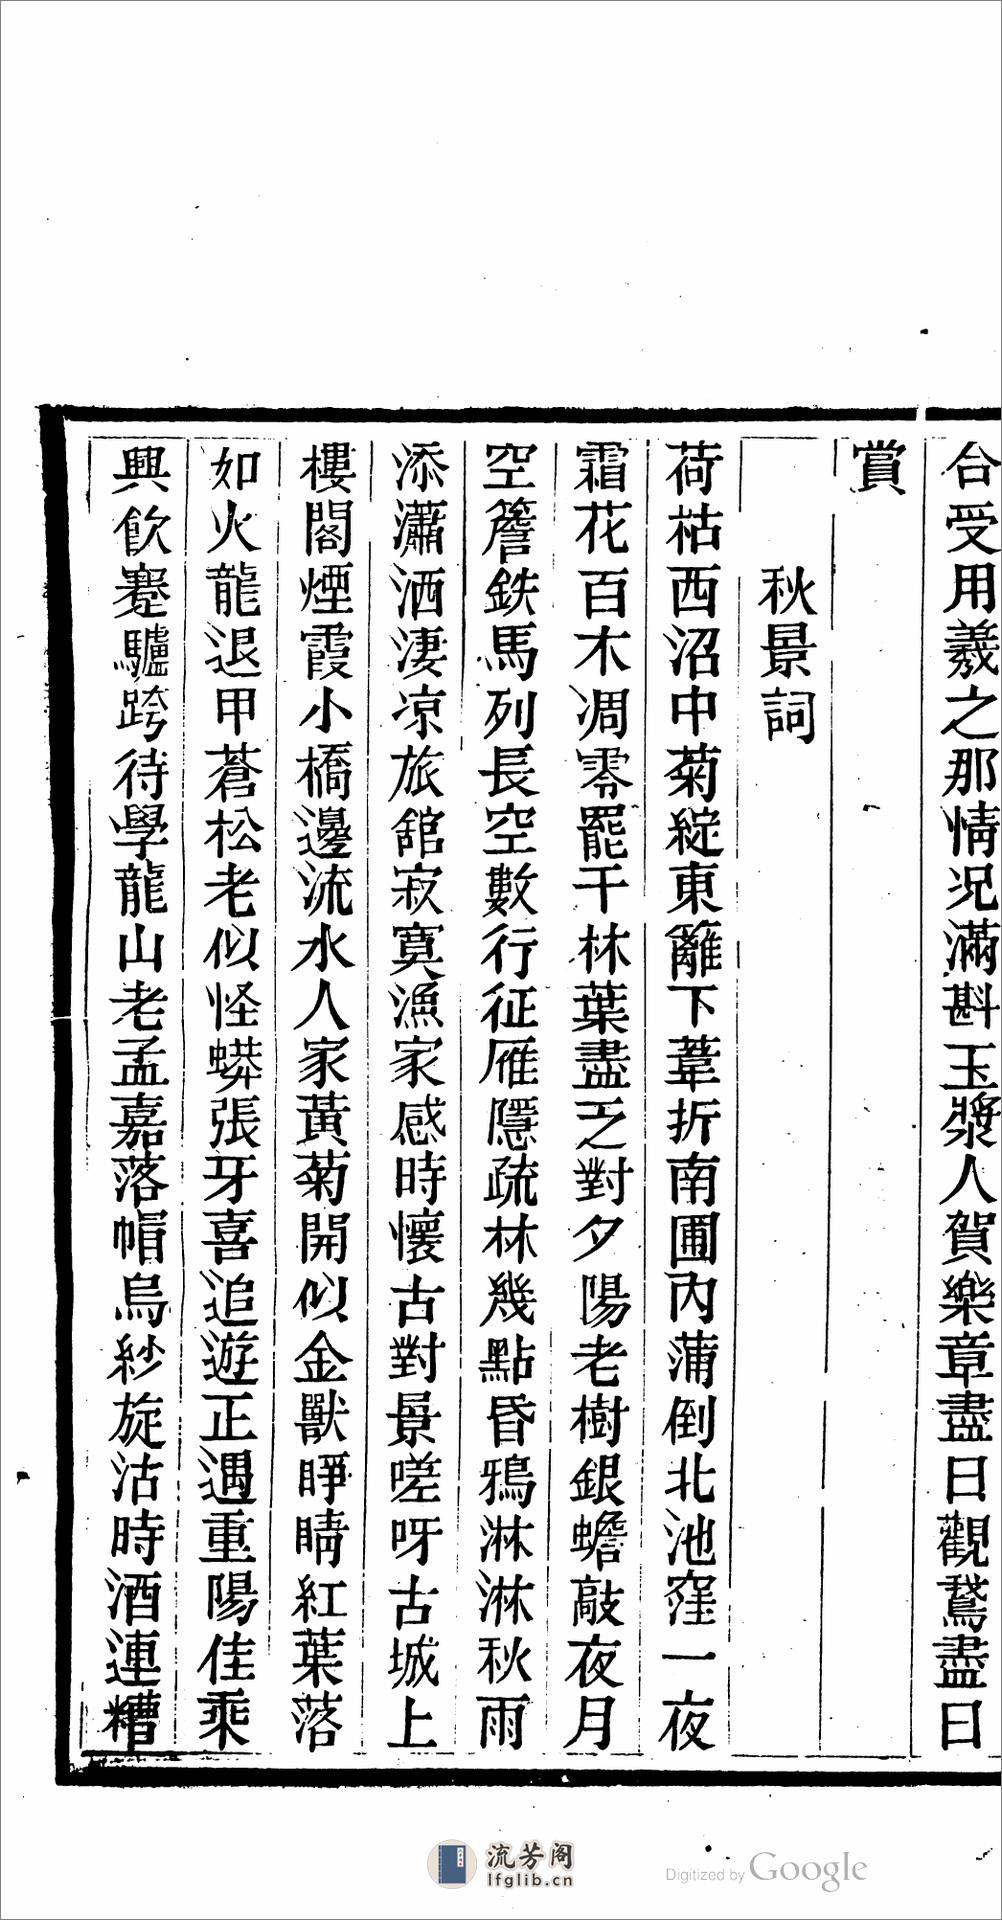 合受用羲之那情况滿斟玉漿人賀樂章盡日觀鵞盡日
賞
秋景詞
荷枯西沼中菊綻東籬下葦折南圃內蒲倒北池窪一夜
霜花百木凋零罷千林葉盡乏對夕陽老樹銀蟾敲夜月
空簷鉄馬列長空數行征雁隱疏林幾點昏鴉淋淋秋雨
添瀟洒淒凉旅館寂寞漁家感時懷古對景嗟呀古城上
樓閣煙霞小橋邊流水人家黃菊開似金獸睜睛紅葉落
如火龍退甲蒼松老似怪蟒張牙喜追遊正遇重陽佳乘
興飲蹇驢跨待學龍山老孟嘉落帽烏紗旋沽時酒連糟
流芳阁
lfglib.cn
Digitized by Google